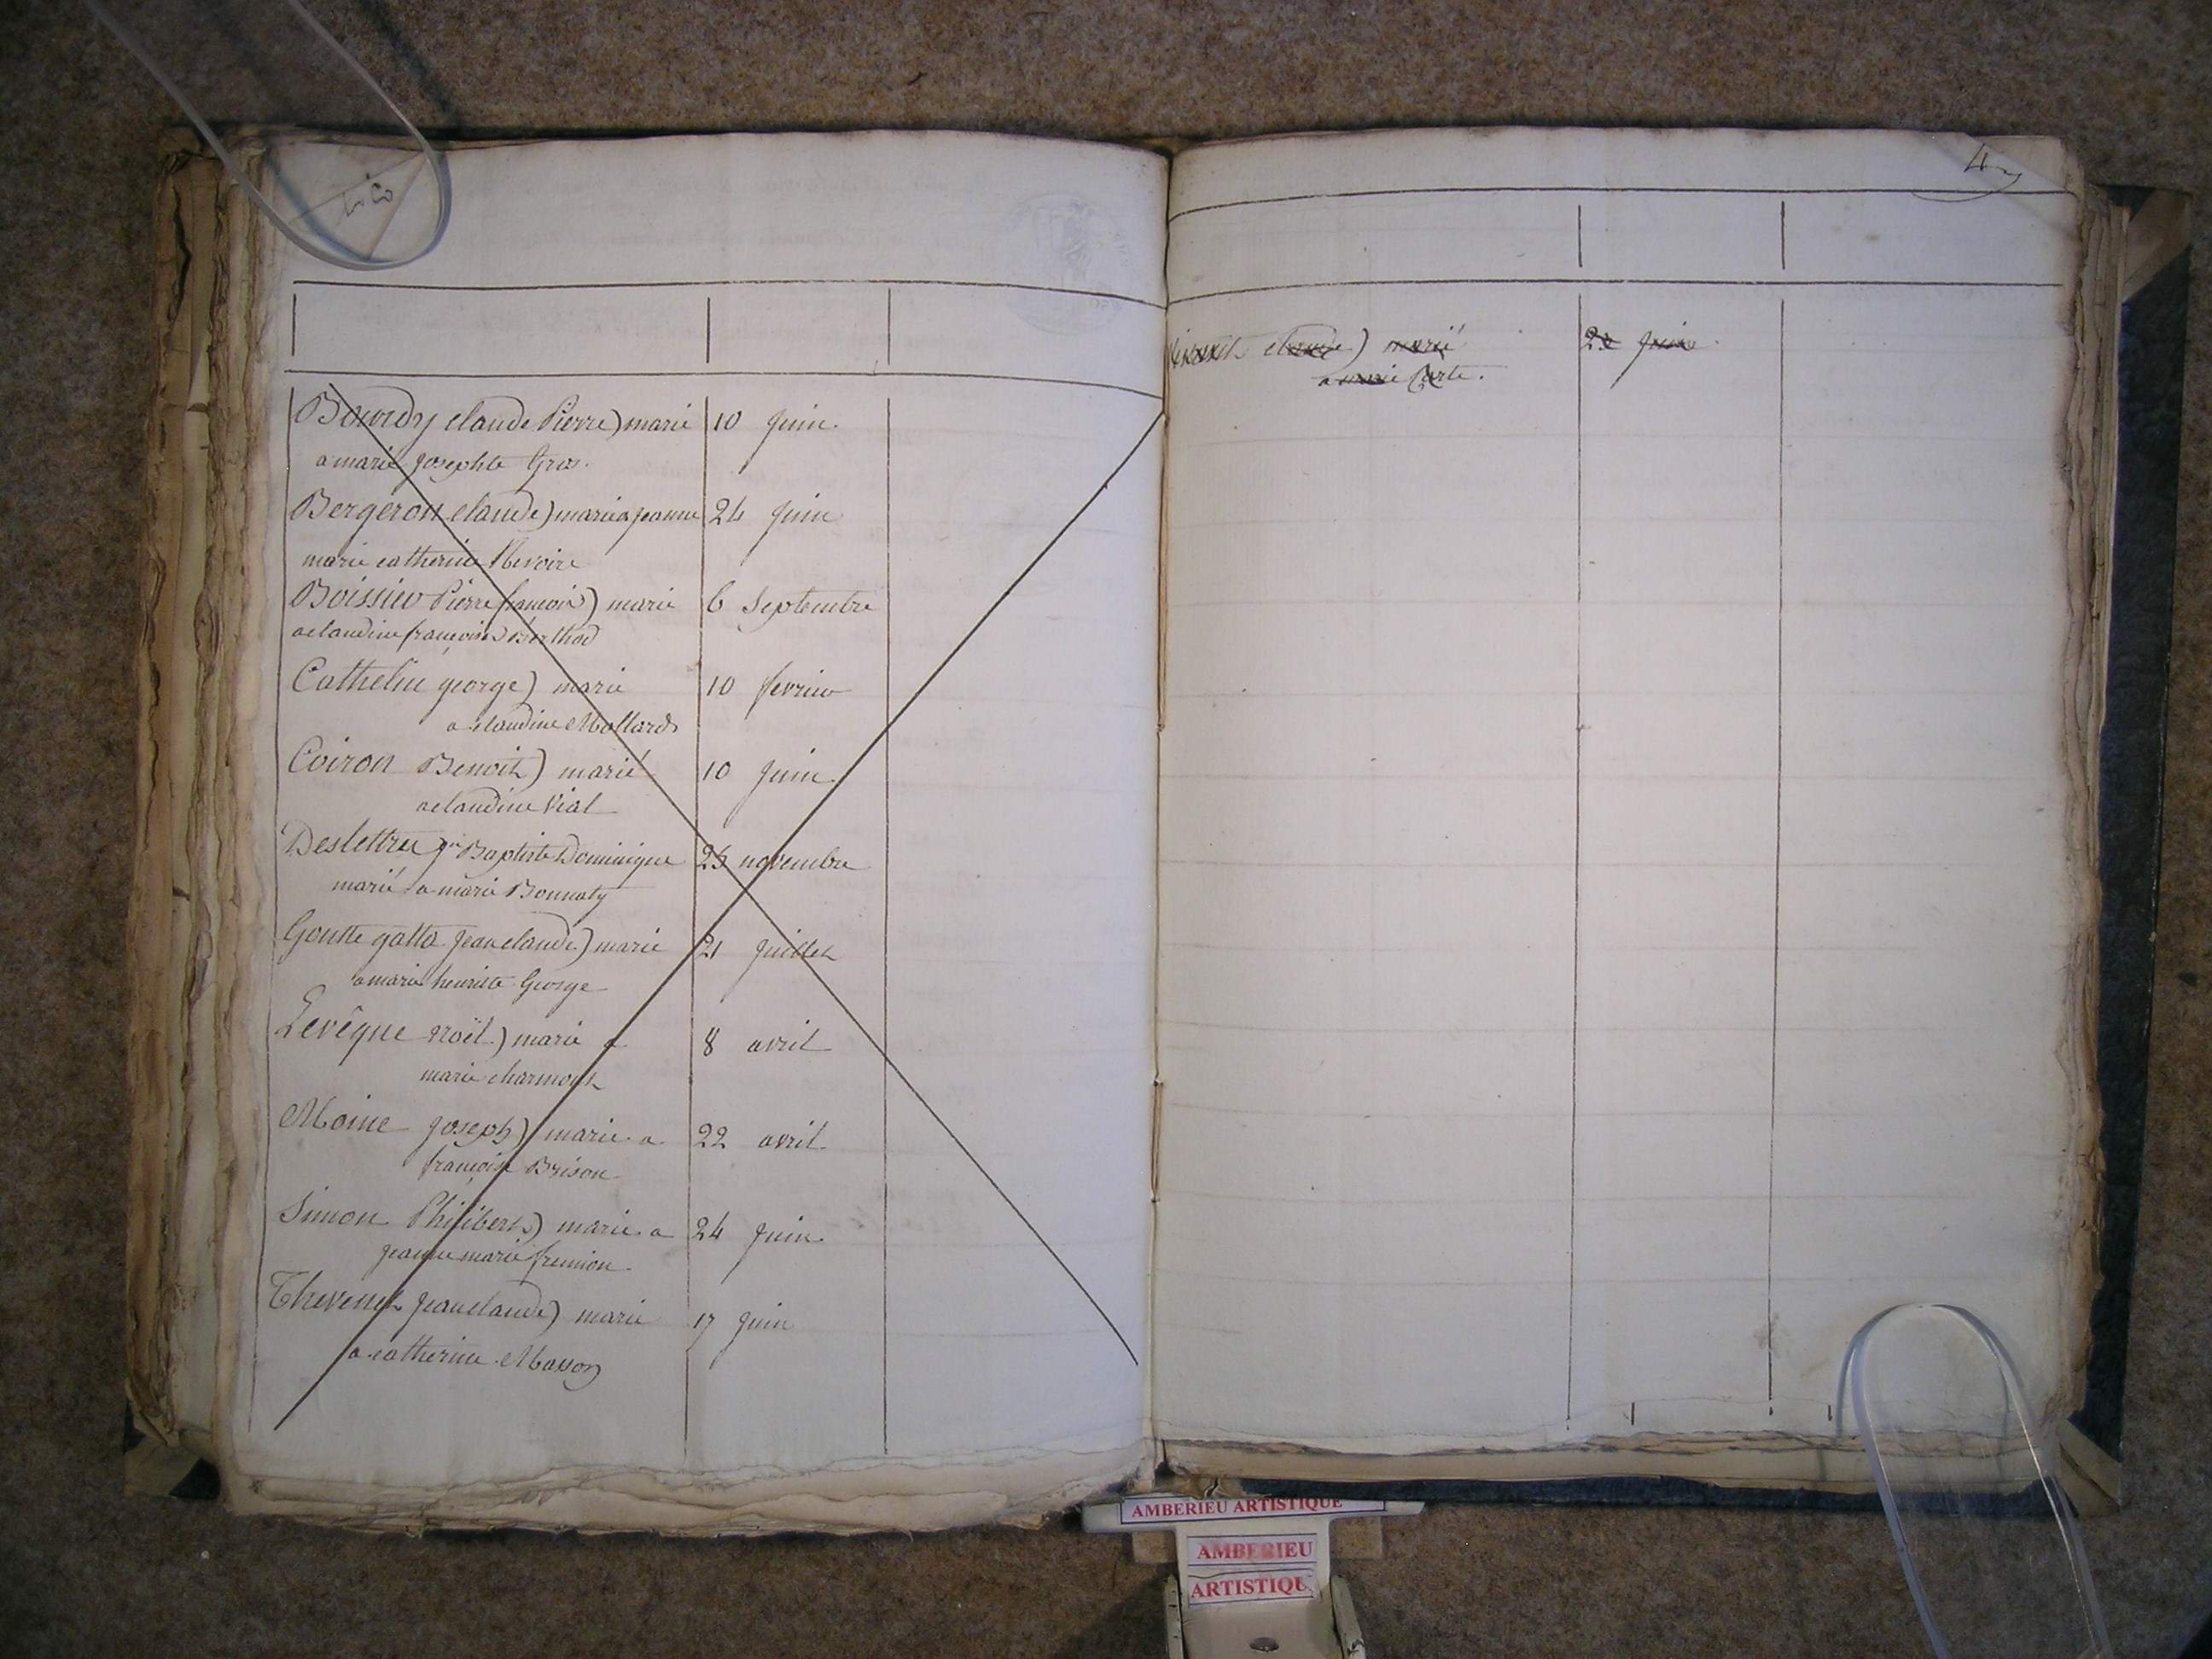 Bourdy claude Pierre) marié 10 Juin.
a marie Josephte Gros.
Bergeron claude) marié a jeanne 24 Juin
marie catherine Nevoire
Boissieu Pierre françois) marié 6 Septembre
a claudine françoise Berthod
Cathelin george) marié 10 fevrier
a claudine Mollard
Coiron Benoit) marié 10 Juin.
a claudine Vial
Deslettre jn Baptiste Dominique 25 novembre
marié a marie Bonnaty
Goutte gatta Jean claude) marié 21 Juillet
a marie henriete George
Levêque noël) marié a 8 avril
marie charmont
Moine joseph) marié a 22 avril
françoise Brison
Simon Philibert) marié a 24 Juin.
jeanne marie fremion.
Thevenet Jean claude) marié 17 Juin
a catherine Masson
4
claude) marié 22 Juin.
a marie Carte.
AMBERIEU ARTISTIQUE
AMBERIEU
ARTISTIQU